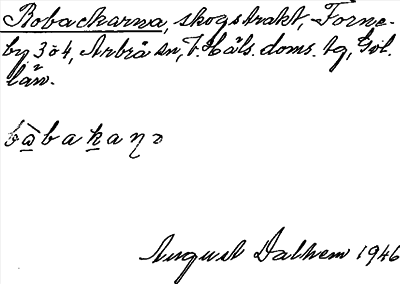 Bobackarna, skogstrakt, Forne-
by 3 o 4, Arbrå sn, V. Häls. doms. tg, Gvl.
län.
bàbakaŋɔ
August Dalhem 1946